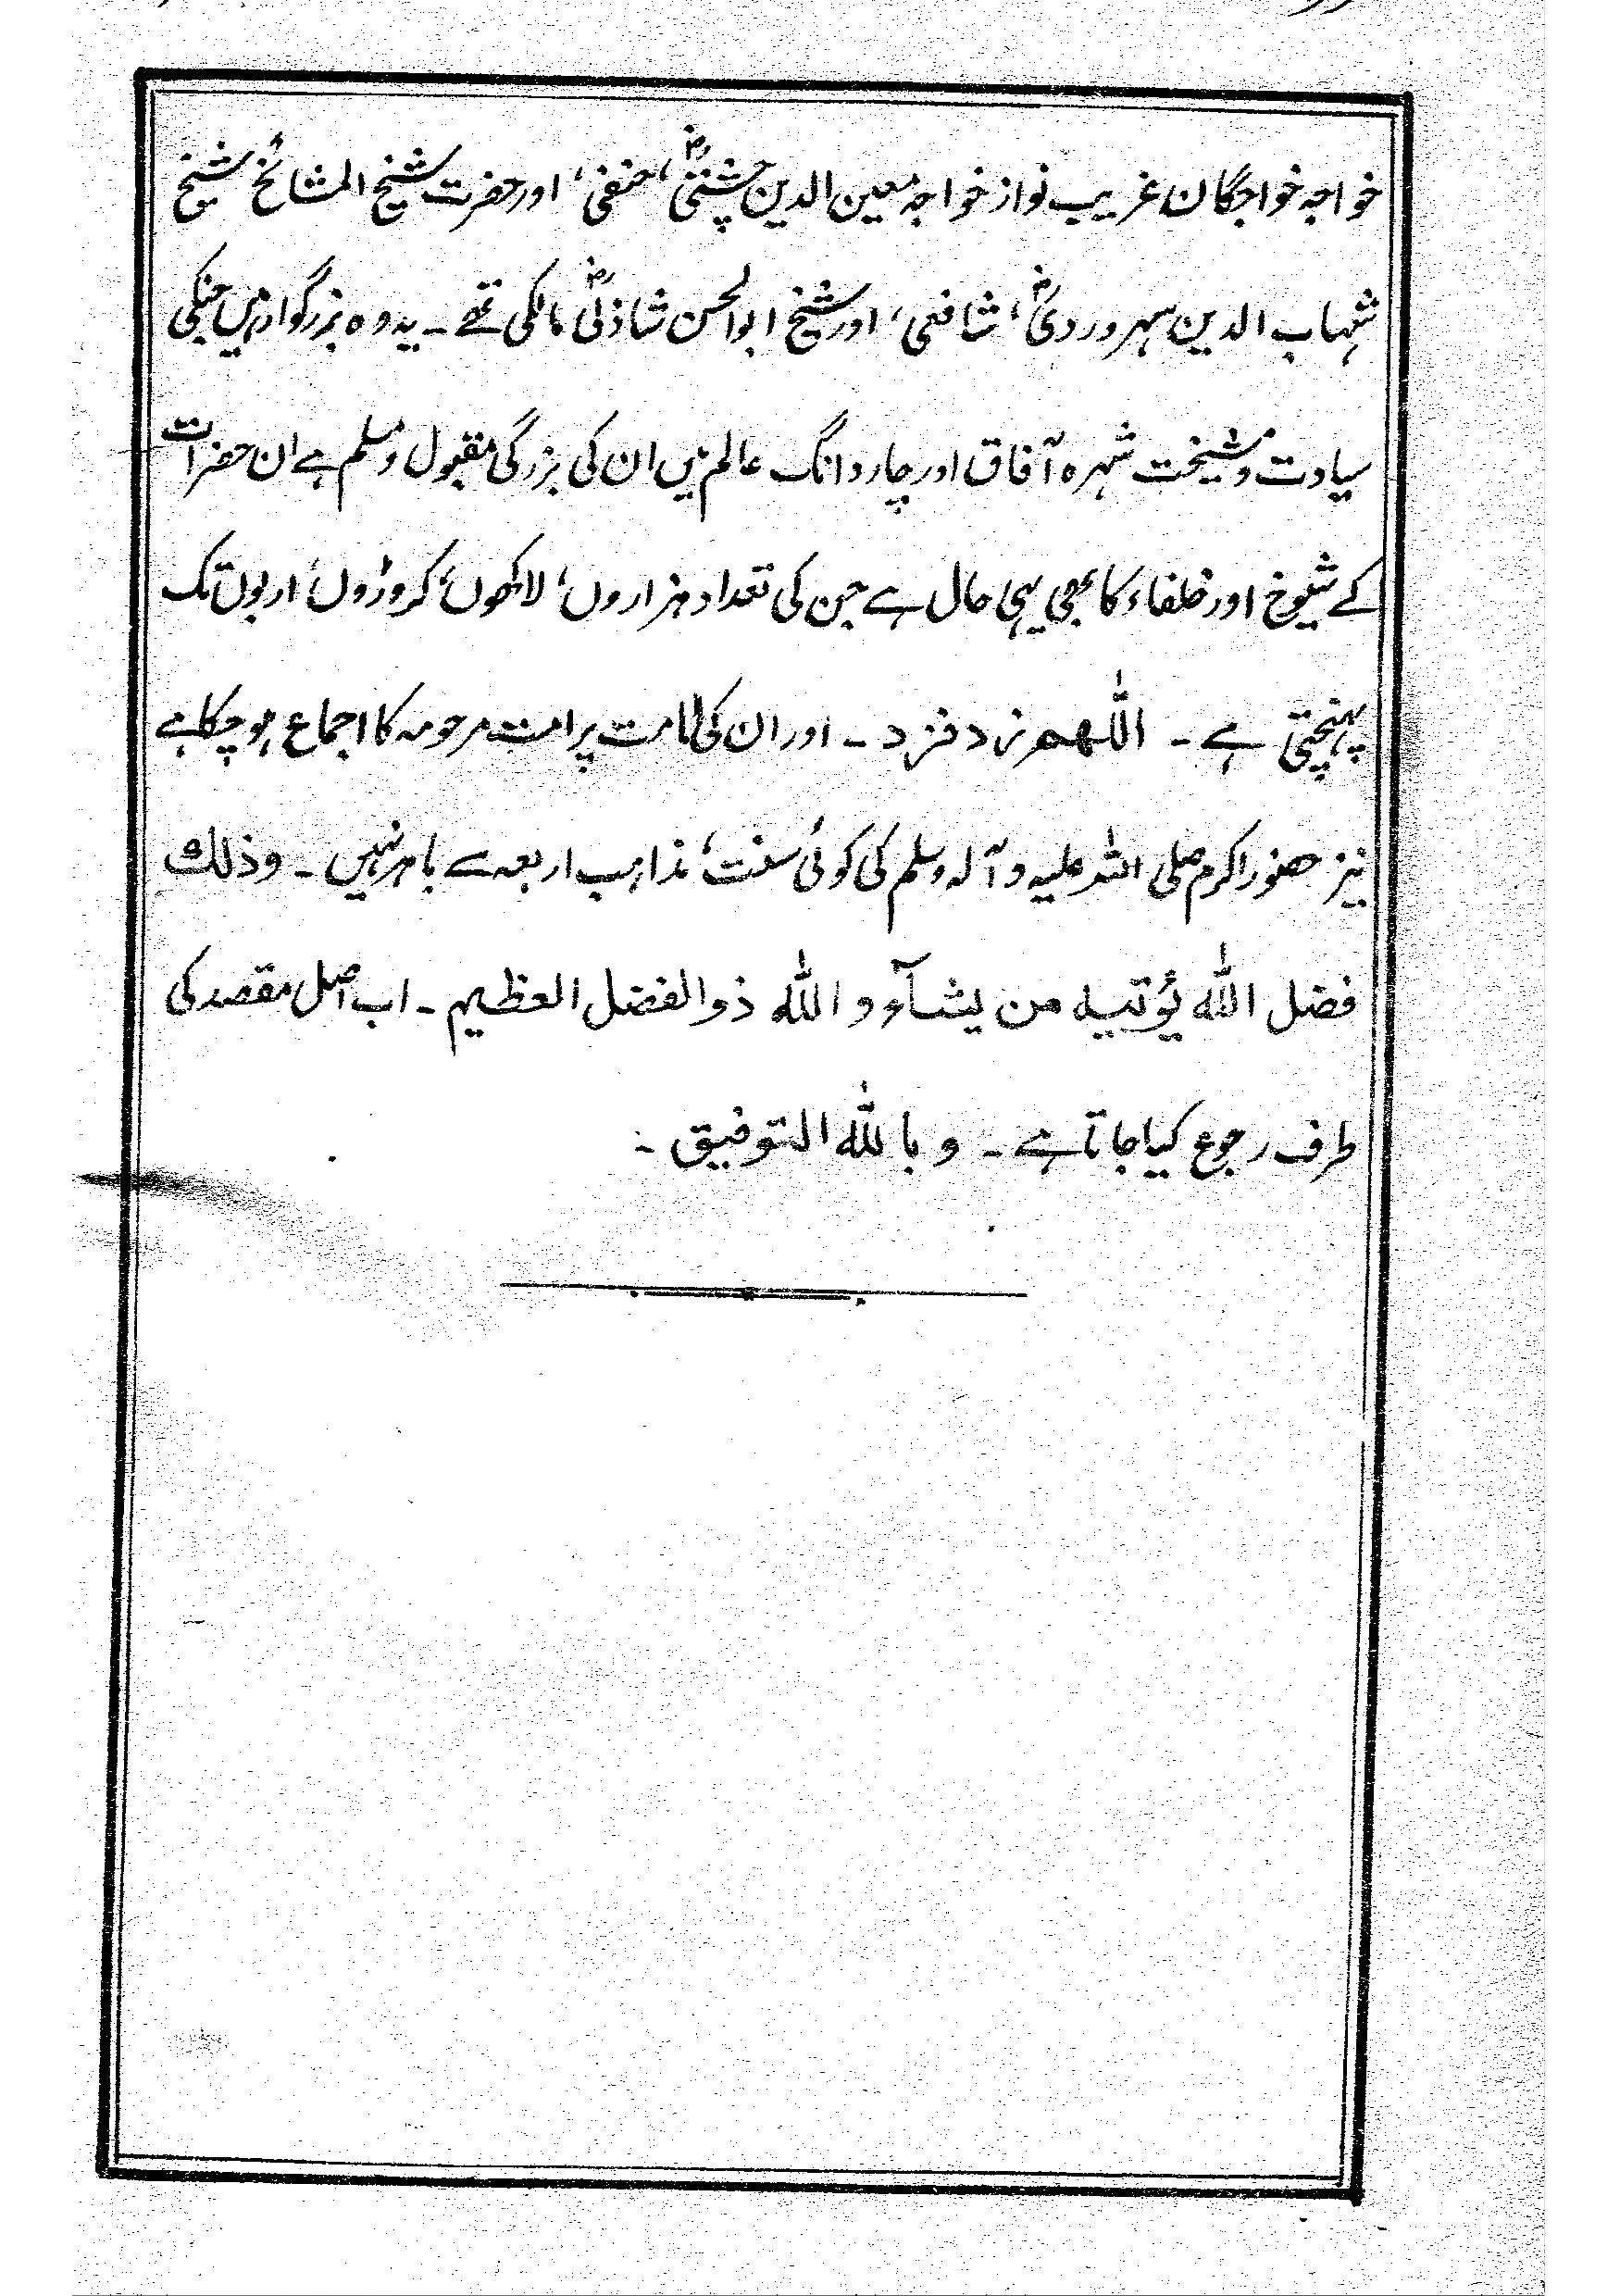 خواجہ خواجگان غریب نواز خواجہ معین الدین چشتیؓ، حنفی، اور حضرت شیخ المشائخ شیخ
شہاب الدین سہروردیؓ، شافعی، اور شیخ ابوالحسن شاذلیؓ مالکی تھے ۔ یہ وہ بزرگوار ہیں جنکی
سیادت و مشیخت شہرہ آفاق اور چار دانگ عالم میں ان کی بزرگی مقبول و مسلم ہے ان حضرات
کے شیوخ اور خلفاء کا بھی یہی حال ہے جن کی تعداد ہزاروں، لاکھوں، کروڑوں، اربوں تک
پہنچتی ہے ۔ اللّٰھم زد فزد ۔ اور ان کی امامت پر امت مرحومہ کا اجماع ہو چکا ہے
نیز حضور اکرم صلی اللہ علیہ و آلہ وسلم کی کوئی سنت، مذاہب اربعہ سے باہر نہیں ۔ وذلك
فضل اللّٰہ یؤتیہ من یشآء و اللّٰہ ذوالفضل العظیم ۔ اب اصل مقصد کی
طرف رجوع کیا جاتا ہے ۔ و باللّٰہ التوفیق ۔